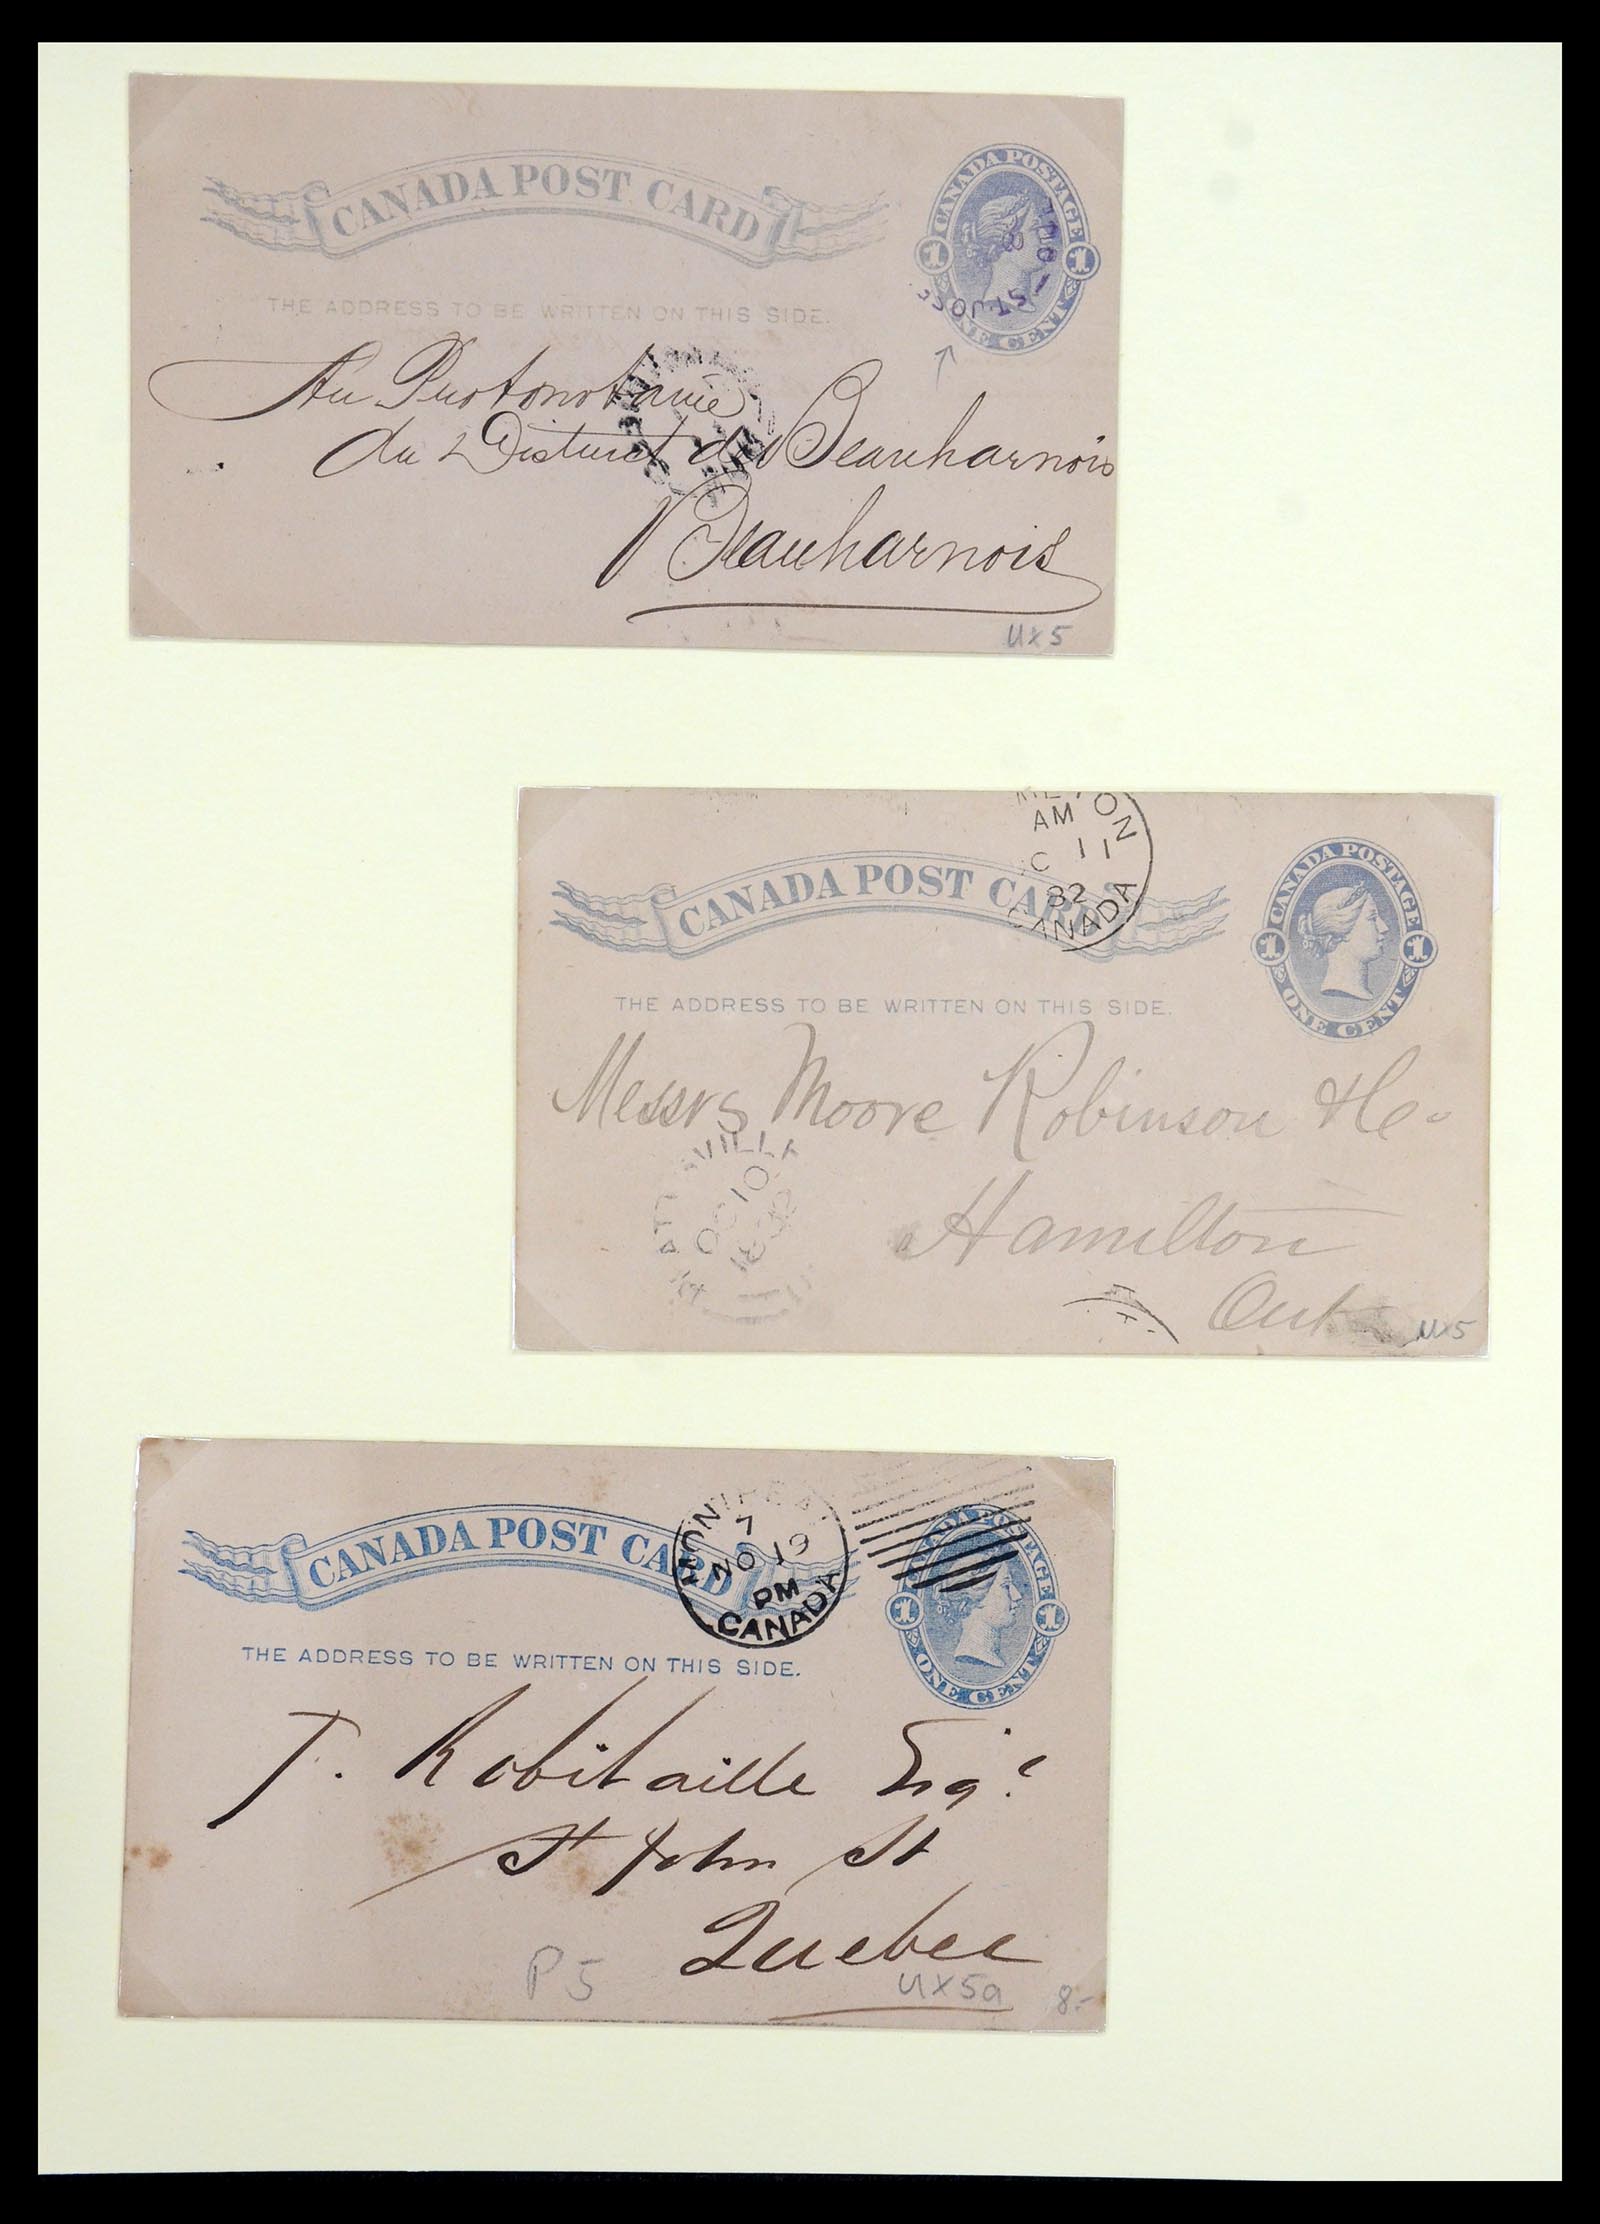 CANADA POST CARD
CANADA POSTAGE
1 1
ONE CENT
THE ADDRESS TO BE WRITTEN ON THIS SIDE.
Au Protonotaire
du District de Beauharnois
Beauharnois
UX5
AM
11
82
CANADA
CANADA POST CARD
CANADA POSTAGE
1 1
ONE CENT
THE ADDRESS TO BE WRITTEN ON THIS SIDE.
Messrs Moore Robinson & Co
OC 10
Hamilton
Ont
UX5
CANADA POST CARD
MONTREAL
7
NO 19
PM
CANADA
CANADA POSTAGE
1 1
ONE CENT
THE ADDRESS TO BE WRITTEN ON THIS SIDE.
T. Robitaille Esqe
St John St
Quebec
P5
UX5a
8.-